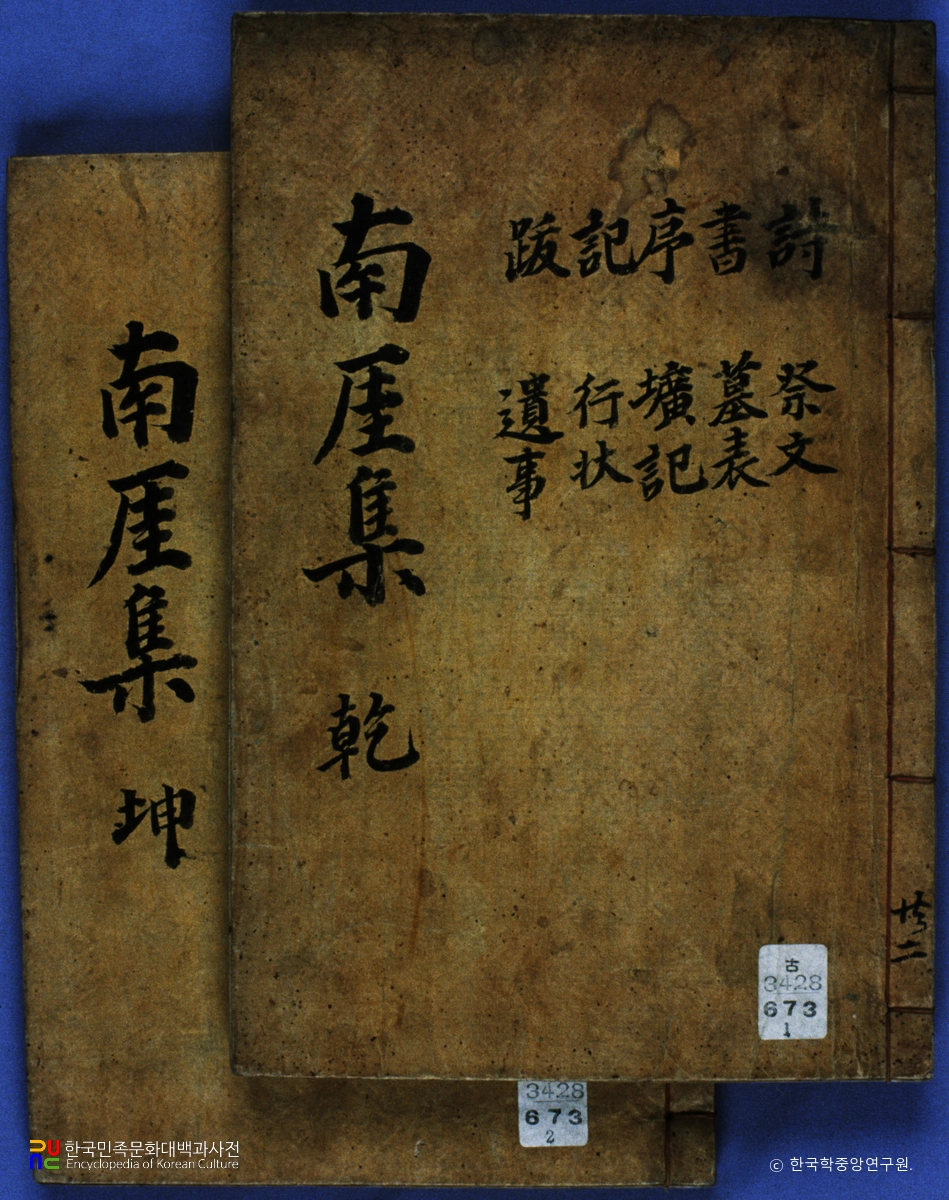 詩
書
序
記
跋
祭文
墓表
壙記
行状
遺事
南厓集 乾
共二
古
3428
673
1
南厓集 坤
3428
673
2
한국민족문화대백과사전
Encyclopedia of Korean Culture
ⓒ 한국학중앙연구원.